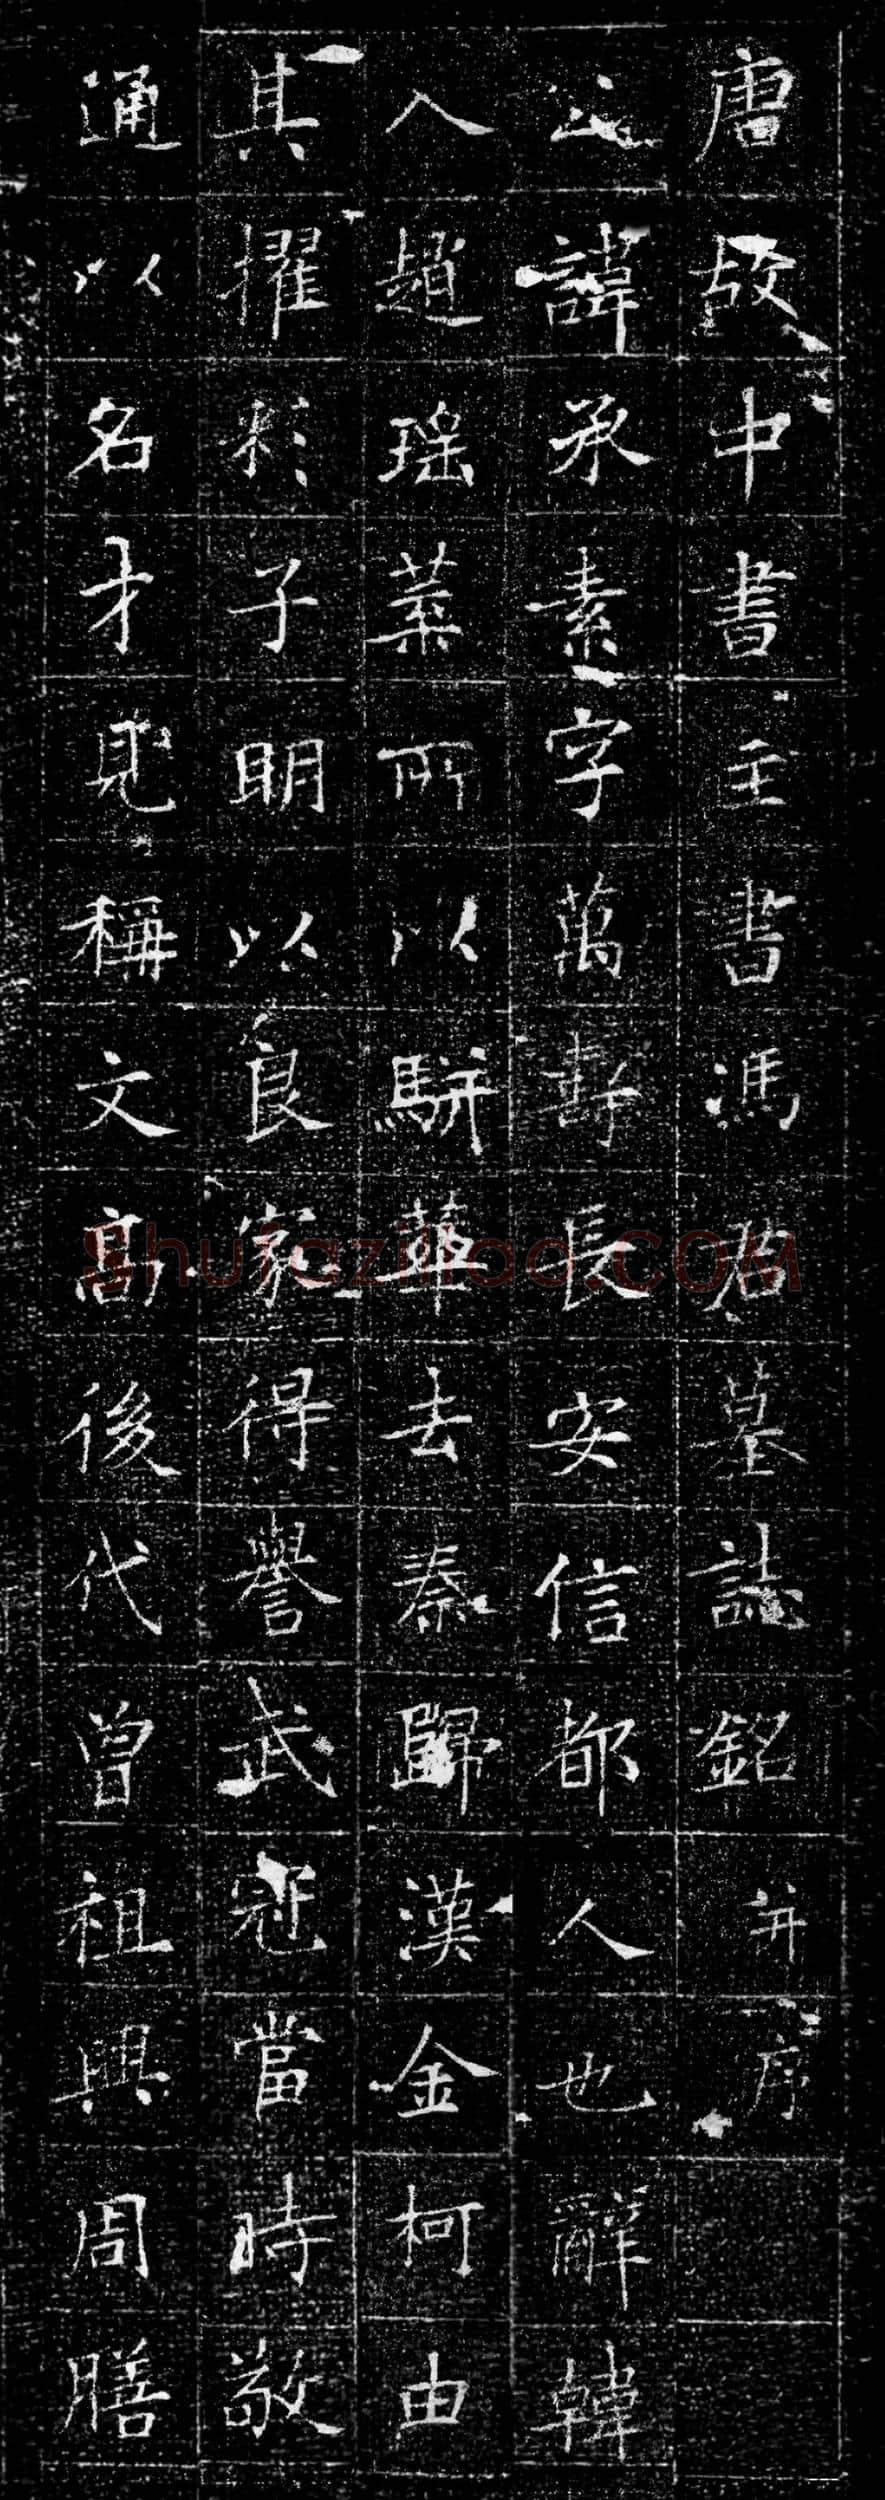 唐故中書主書馮君墓誌銘并序
公諱承素字萬壽長安信都人也辭韓
入趙瑶葉所以駢華去秦歸漢金柯由
其擢彩子明以良家得譽武冠當時敬
通以名才見稱文高後代曾祖興周膳
Shufaziliao.COM